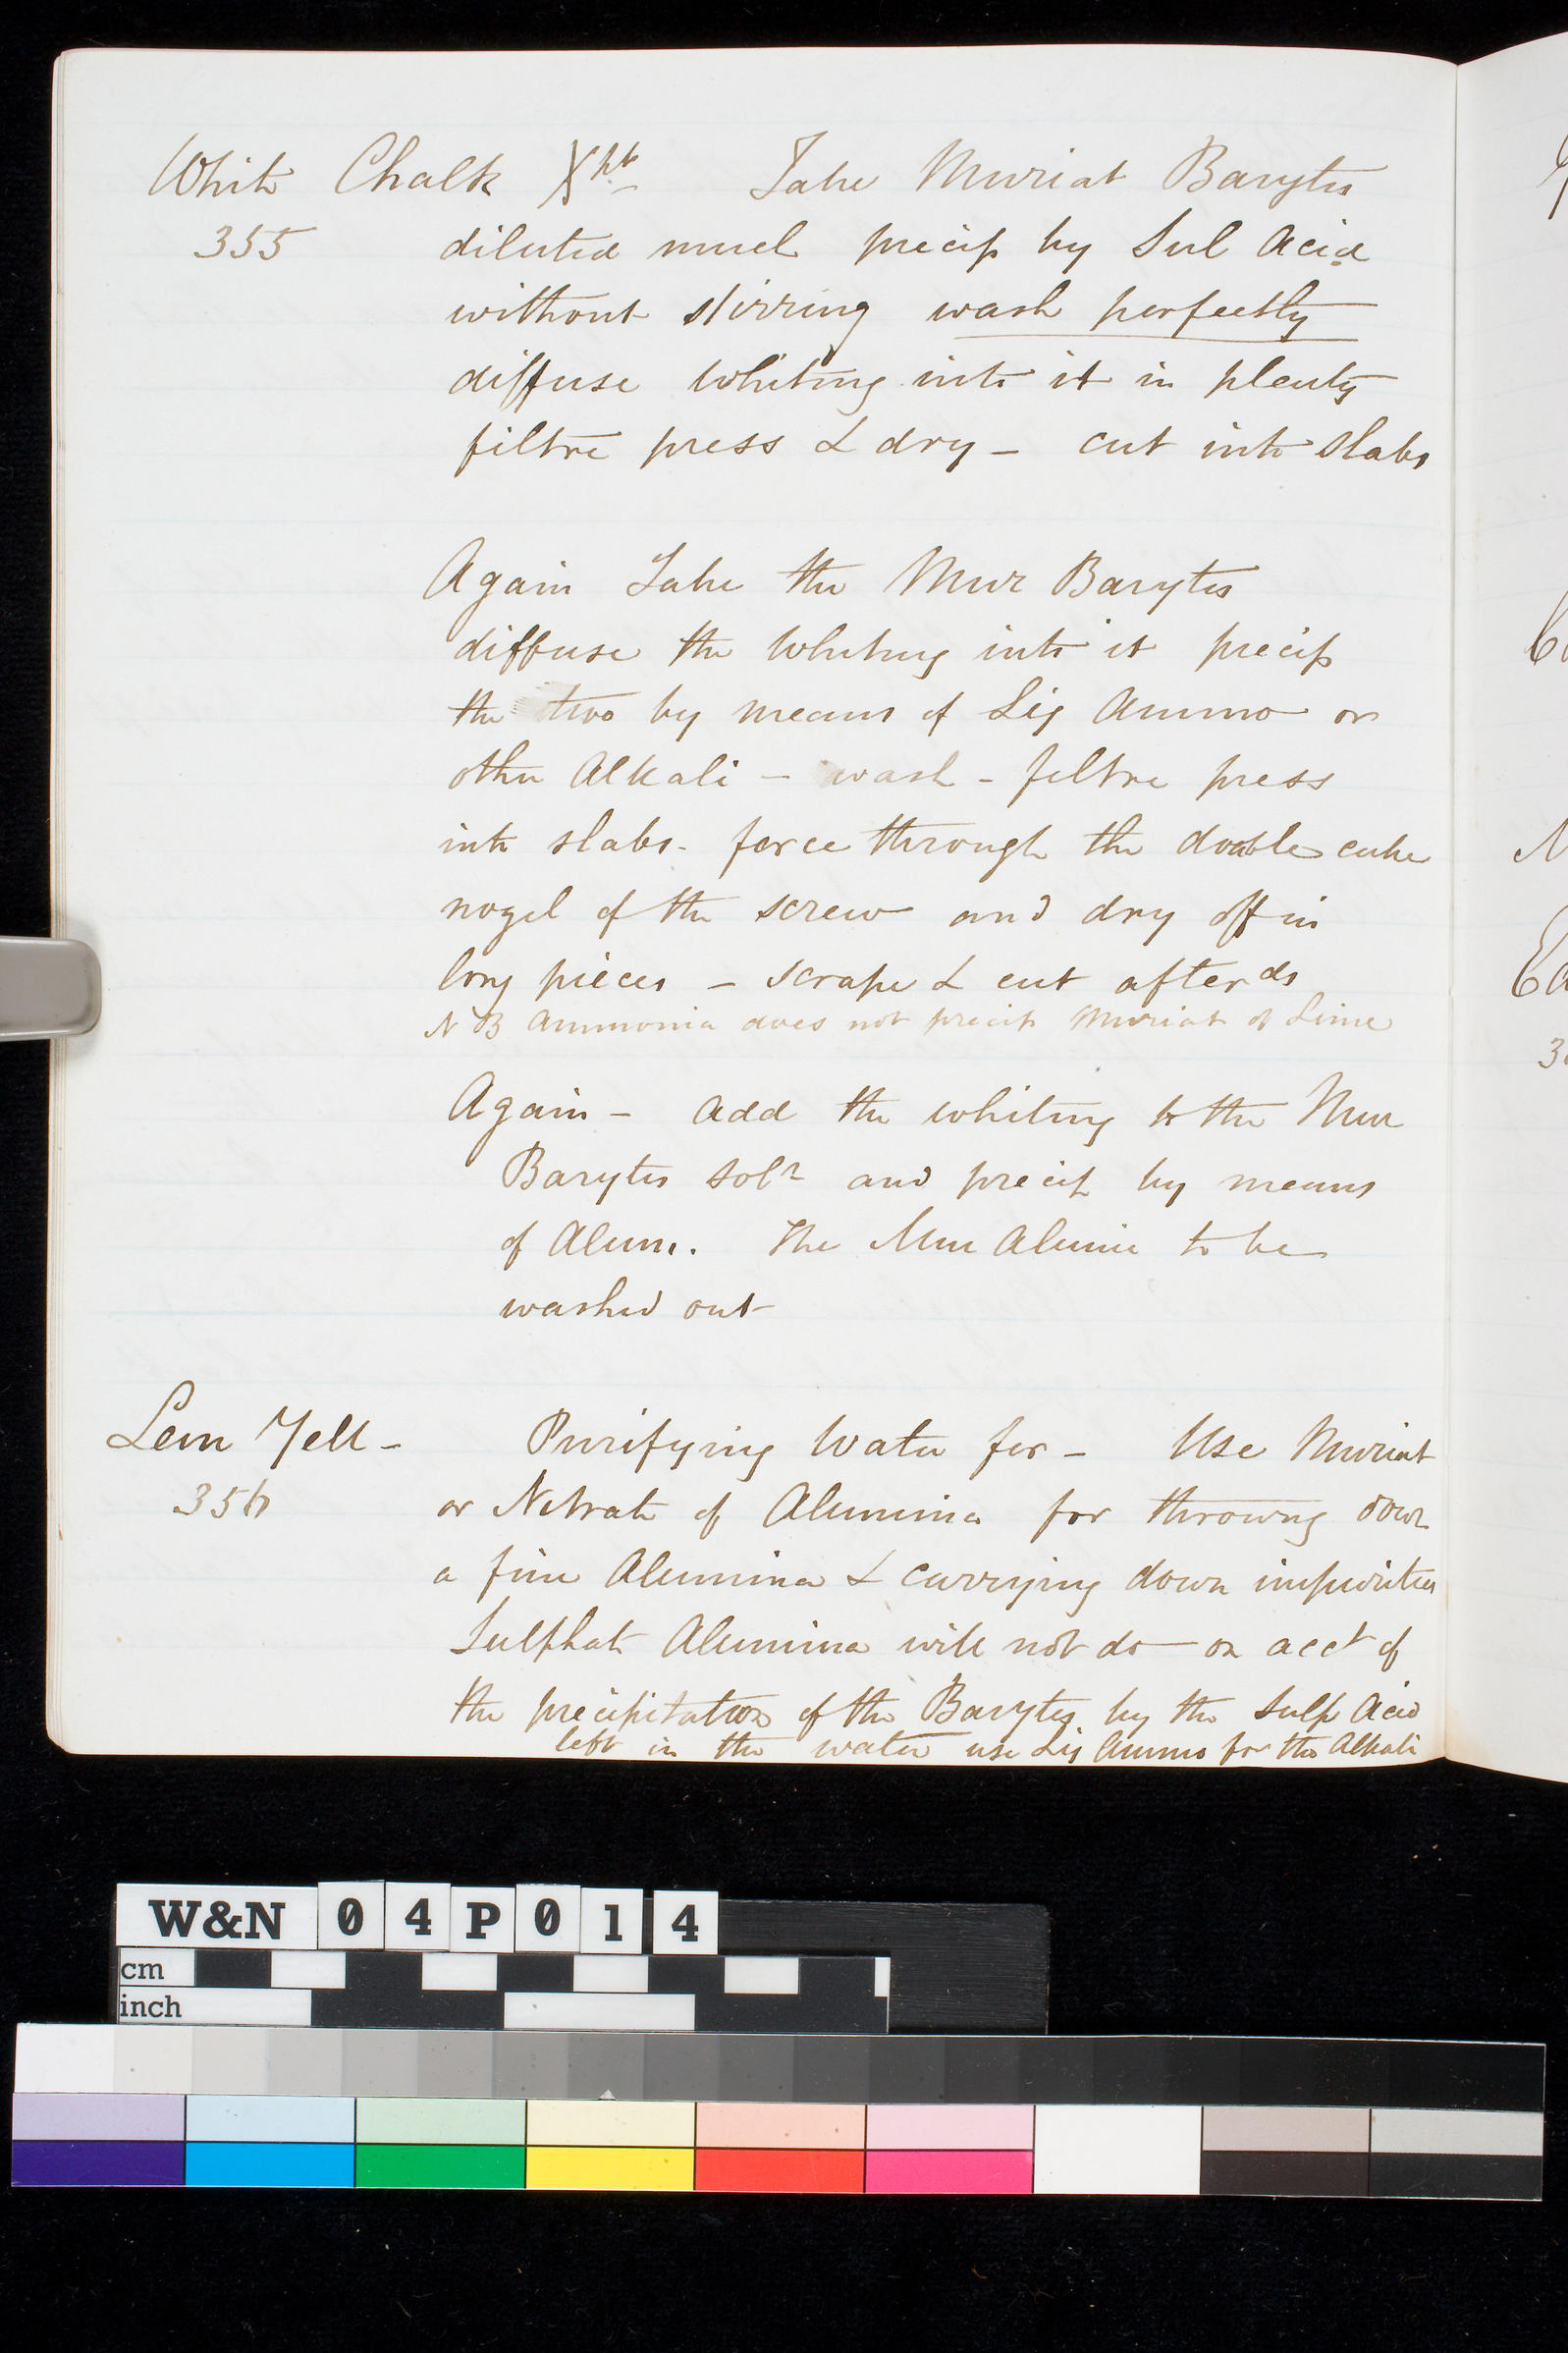 White Chalk Xpt Take Muriat Barytes
355 diluted much precip by Sul Acid
without stirring wash perfectly
diffuse Whiting into it in plenty
filtre press & dry - cut into slabs
Again Take the Mur Barytes
diffuse the Whiting into it precip
the two by means of Liq Ammo or
other Alkali - wash - filtre press
into slabs - force through the double cube
nozel of the screw and dry off in
long pieces - scrape & cut afterds
N B Ammonia does not precip Muriat of Lime
Again - add the whiting to the Mur
Barytes soln and precip by means
of Alum. The Mur Alumine to be
washed out
Lem Yell - Purifying Water for - Use Muriat
356 or Nitrate of Alumina for throwing down
a fine Alumina & carrying down impurities
Sulphate Alumina will not do on acct of
the precipitation of the Barytes by the Sulp Acid
left in the water use Liq Ammo for the Alkali
W&N 04P014
cm
inch